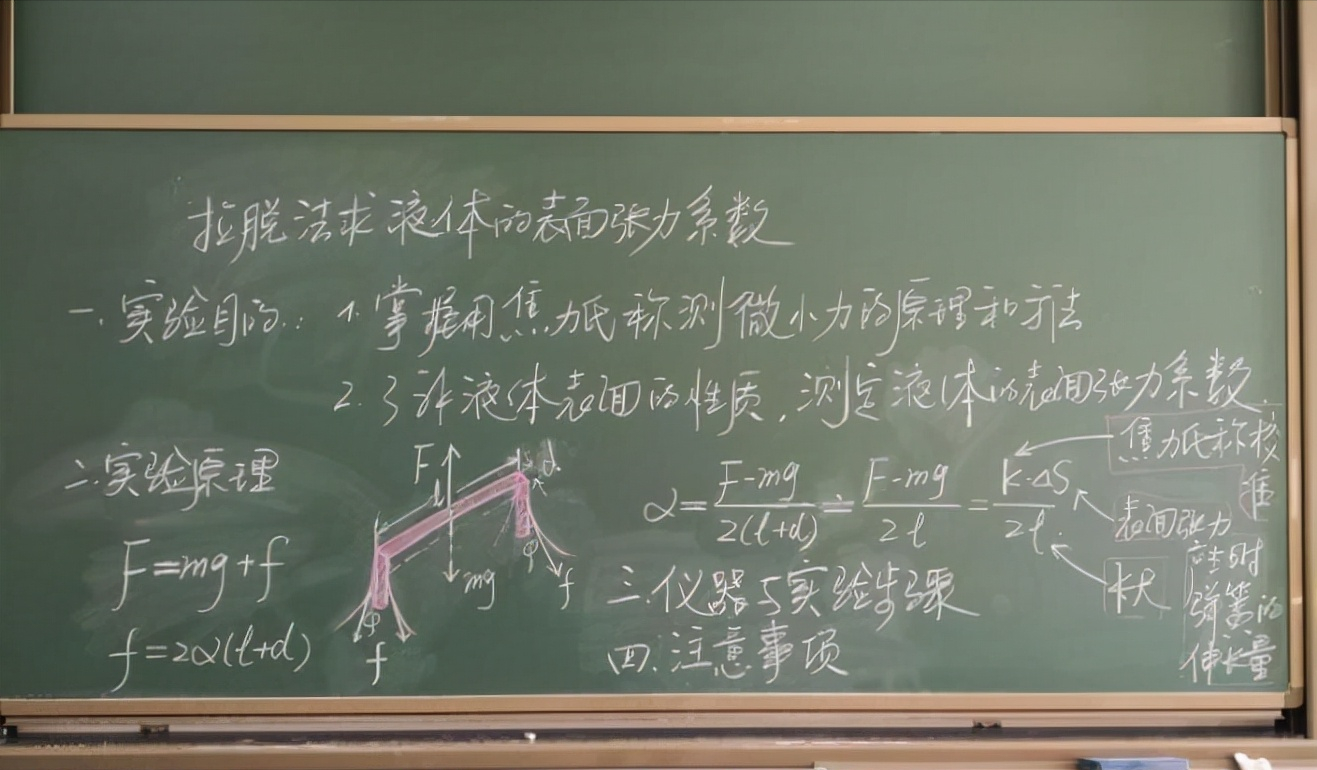 拉脱法求液体的表面张力系数
一.实验目的: 1.掌握用焦力氏称测微小力的原理和方法
2.了解液体表面的性质,测定液体的表面张力系数.
二.实验原理
F=mg+f
f=2α(l+d)
F
d
l
mg
φ
f
φ
f
α=\frac{F-mg}{2(l+d)}≐\frac{F-mg}{2l}=\frac{K·ΔS}{2l}
焦力氏称校准
表面张力
产生时
弹簧的
伸长量
长
三.仪器与实验步骤
四.注意事项